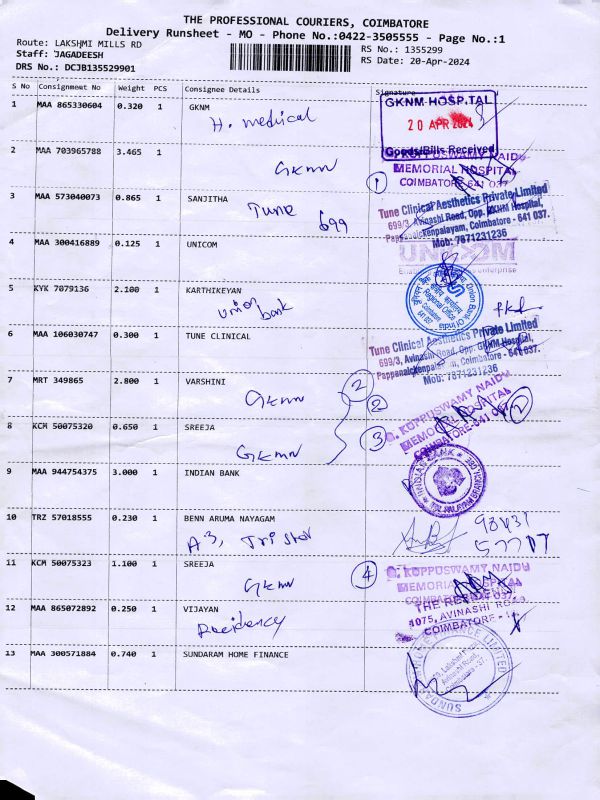 THE PROFESSIONAL COURIERS, COIMBATORE
Delivery Runsheet - MO - Phone No.:0422-3505555 - Page No.:1
Route: LAKSHMI MILLS RD
Staff: JAGADEESH
DRS No.: DCJB135529901
RS No.: 1355299
RS Date: 20-Apr-2024
S No Consignment No Weight PCS Consignee Details Signature
1 MAA 865330604 0.320 1 GKNM
H. medical
GKNM HOSPITAL
20 APR 2024
Goods/Bills Received
2 MAA 703965788 3.465 1
GKMN
KUPPUSWAMY NAIDU
MEMORIAL HOSPITAL
COIMBATORE 641 037
1
3 MAA 573040073 0.865 1 SANJITHA
Tune 699
Tune Clinical Aesthetics Private Limited
699/3, Avinashi Road, Opp. GKNM Hospital,
Pappanaickenpalayam, Coimbatore - 641 037.
Mob: 7871231236
4 MAA 300416889 0.125 1 UNICOM
UNICOM
5 KYK 7079136 2.100 1 KARTHIKEYAN
union bank
Union Bank of India
Regional Office
6 MAA 106030747 0.300 1 TUNE CLINICAL
Tune Clinical Aesthetics Private Limited
699/3, Avinashi Road, Opp. GKNM Hospital,
Pappanaickenpalayam, Coimbatore - 641 037.
Mob: 7871231236
7 MRT 349865 2.800 1 VARSHINI
GKMN
2
2
2
8 KCM 50075320 0.650 1 SREEJA
GKMN
3
G. KUPPUSWAMY NAIDU
MEMORIAL HOSPITAL
COIMBATORE 641 037
9 MAA 944754375 3.000 1 INDIAN BANK
INDIAN BANK
10 TRZ 57018555 0.230 1 BENN ARUMA NAYAGAM
A3, Tristar
98431
57717
11 KCM 50075323 1.100 1 SREEJA
GKMN
4
G. KUPPUSWAMY NAIDU
MEMORIAL HOSPITAL
12 MAA 865072892 0.250 1 VIJAYAN
Residency
THE RESIDENCY
1075, AVINASHI ROAD
COIMBATORE
13 MAA 300571884 0.740 1 SUNDARAM HOME FINANCE
SUNDARAM HOME FINANCE LIMITED